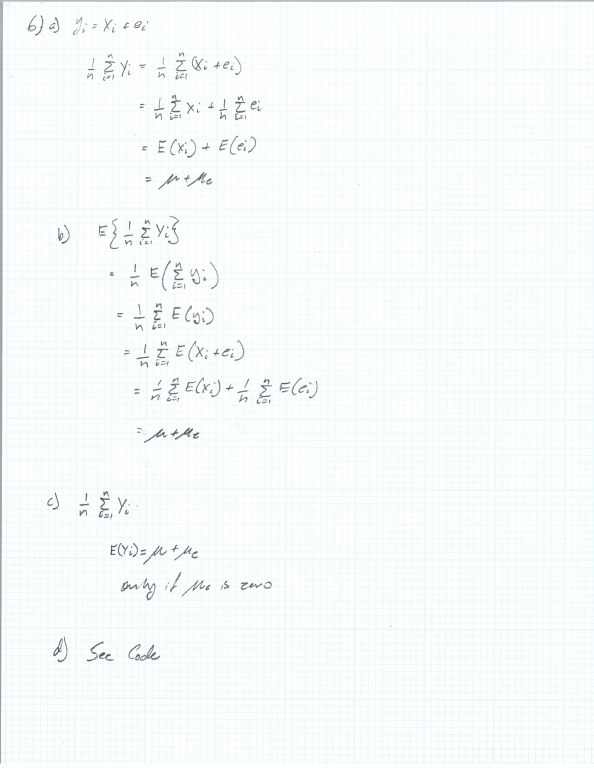 6) a) yi = Xi + ei
1/n Σ_{i=1}^{n} Yi = 1/n Σ_{i=1}^{n} (Xi + ei)
= 1/n Σ_{i=1}^{n} Xi + 1/n Σ_{i=1}^{n} ei
= E(Xi) + E(ei)
= μ + μe
b) E{1/n Σ_{i=1}^{n} Yi}
= 1/n E(Σ_{i=1}^{n} yi)
= 1/n Σ_{i=1}^{n} E(yi)
= 1/n Σ_{i=1}^{n} E(Xi + ei)
= 1/n Σ_{i=1}^{n} E(Xi) + 1/n Σ_{i=1}^{n} E(ei)
= μ + μe
c) 1/n Σ_{i=1}^{n} Yi
E(Yi) = μ + μe
only if μe is zero
d) See Code